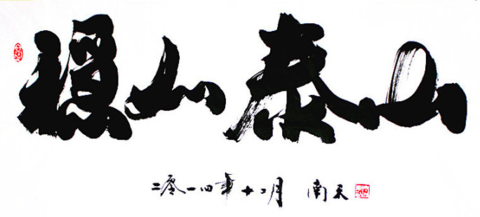 稳如泰山
二零一四年十二月 南天